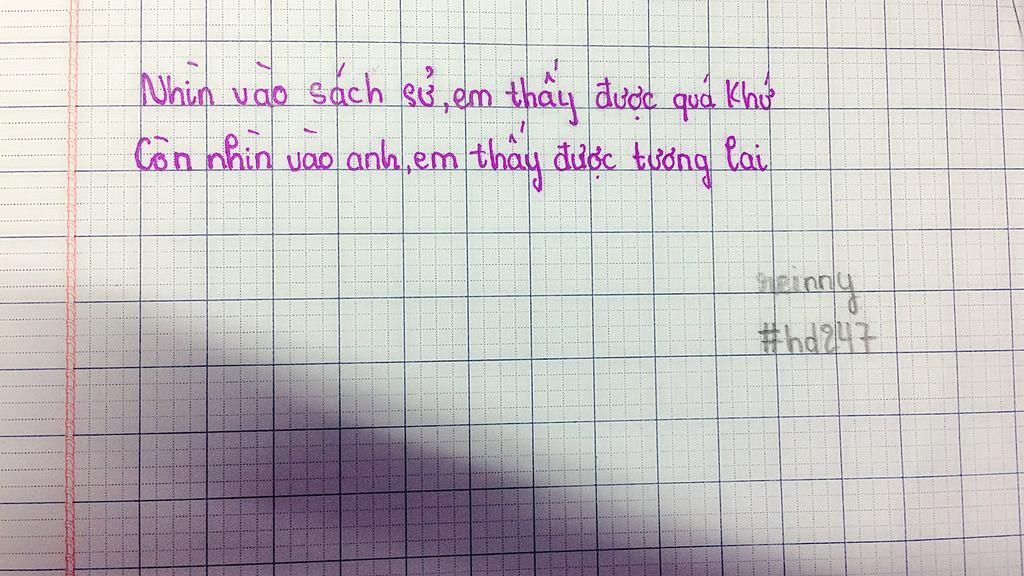 Nhìn vào sách sử, em thấy được quá khứ
Còn nhìn vào anh, em thấy được tương lai
#hd247